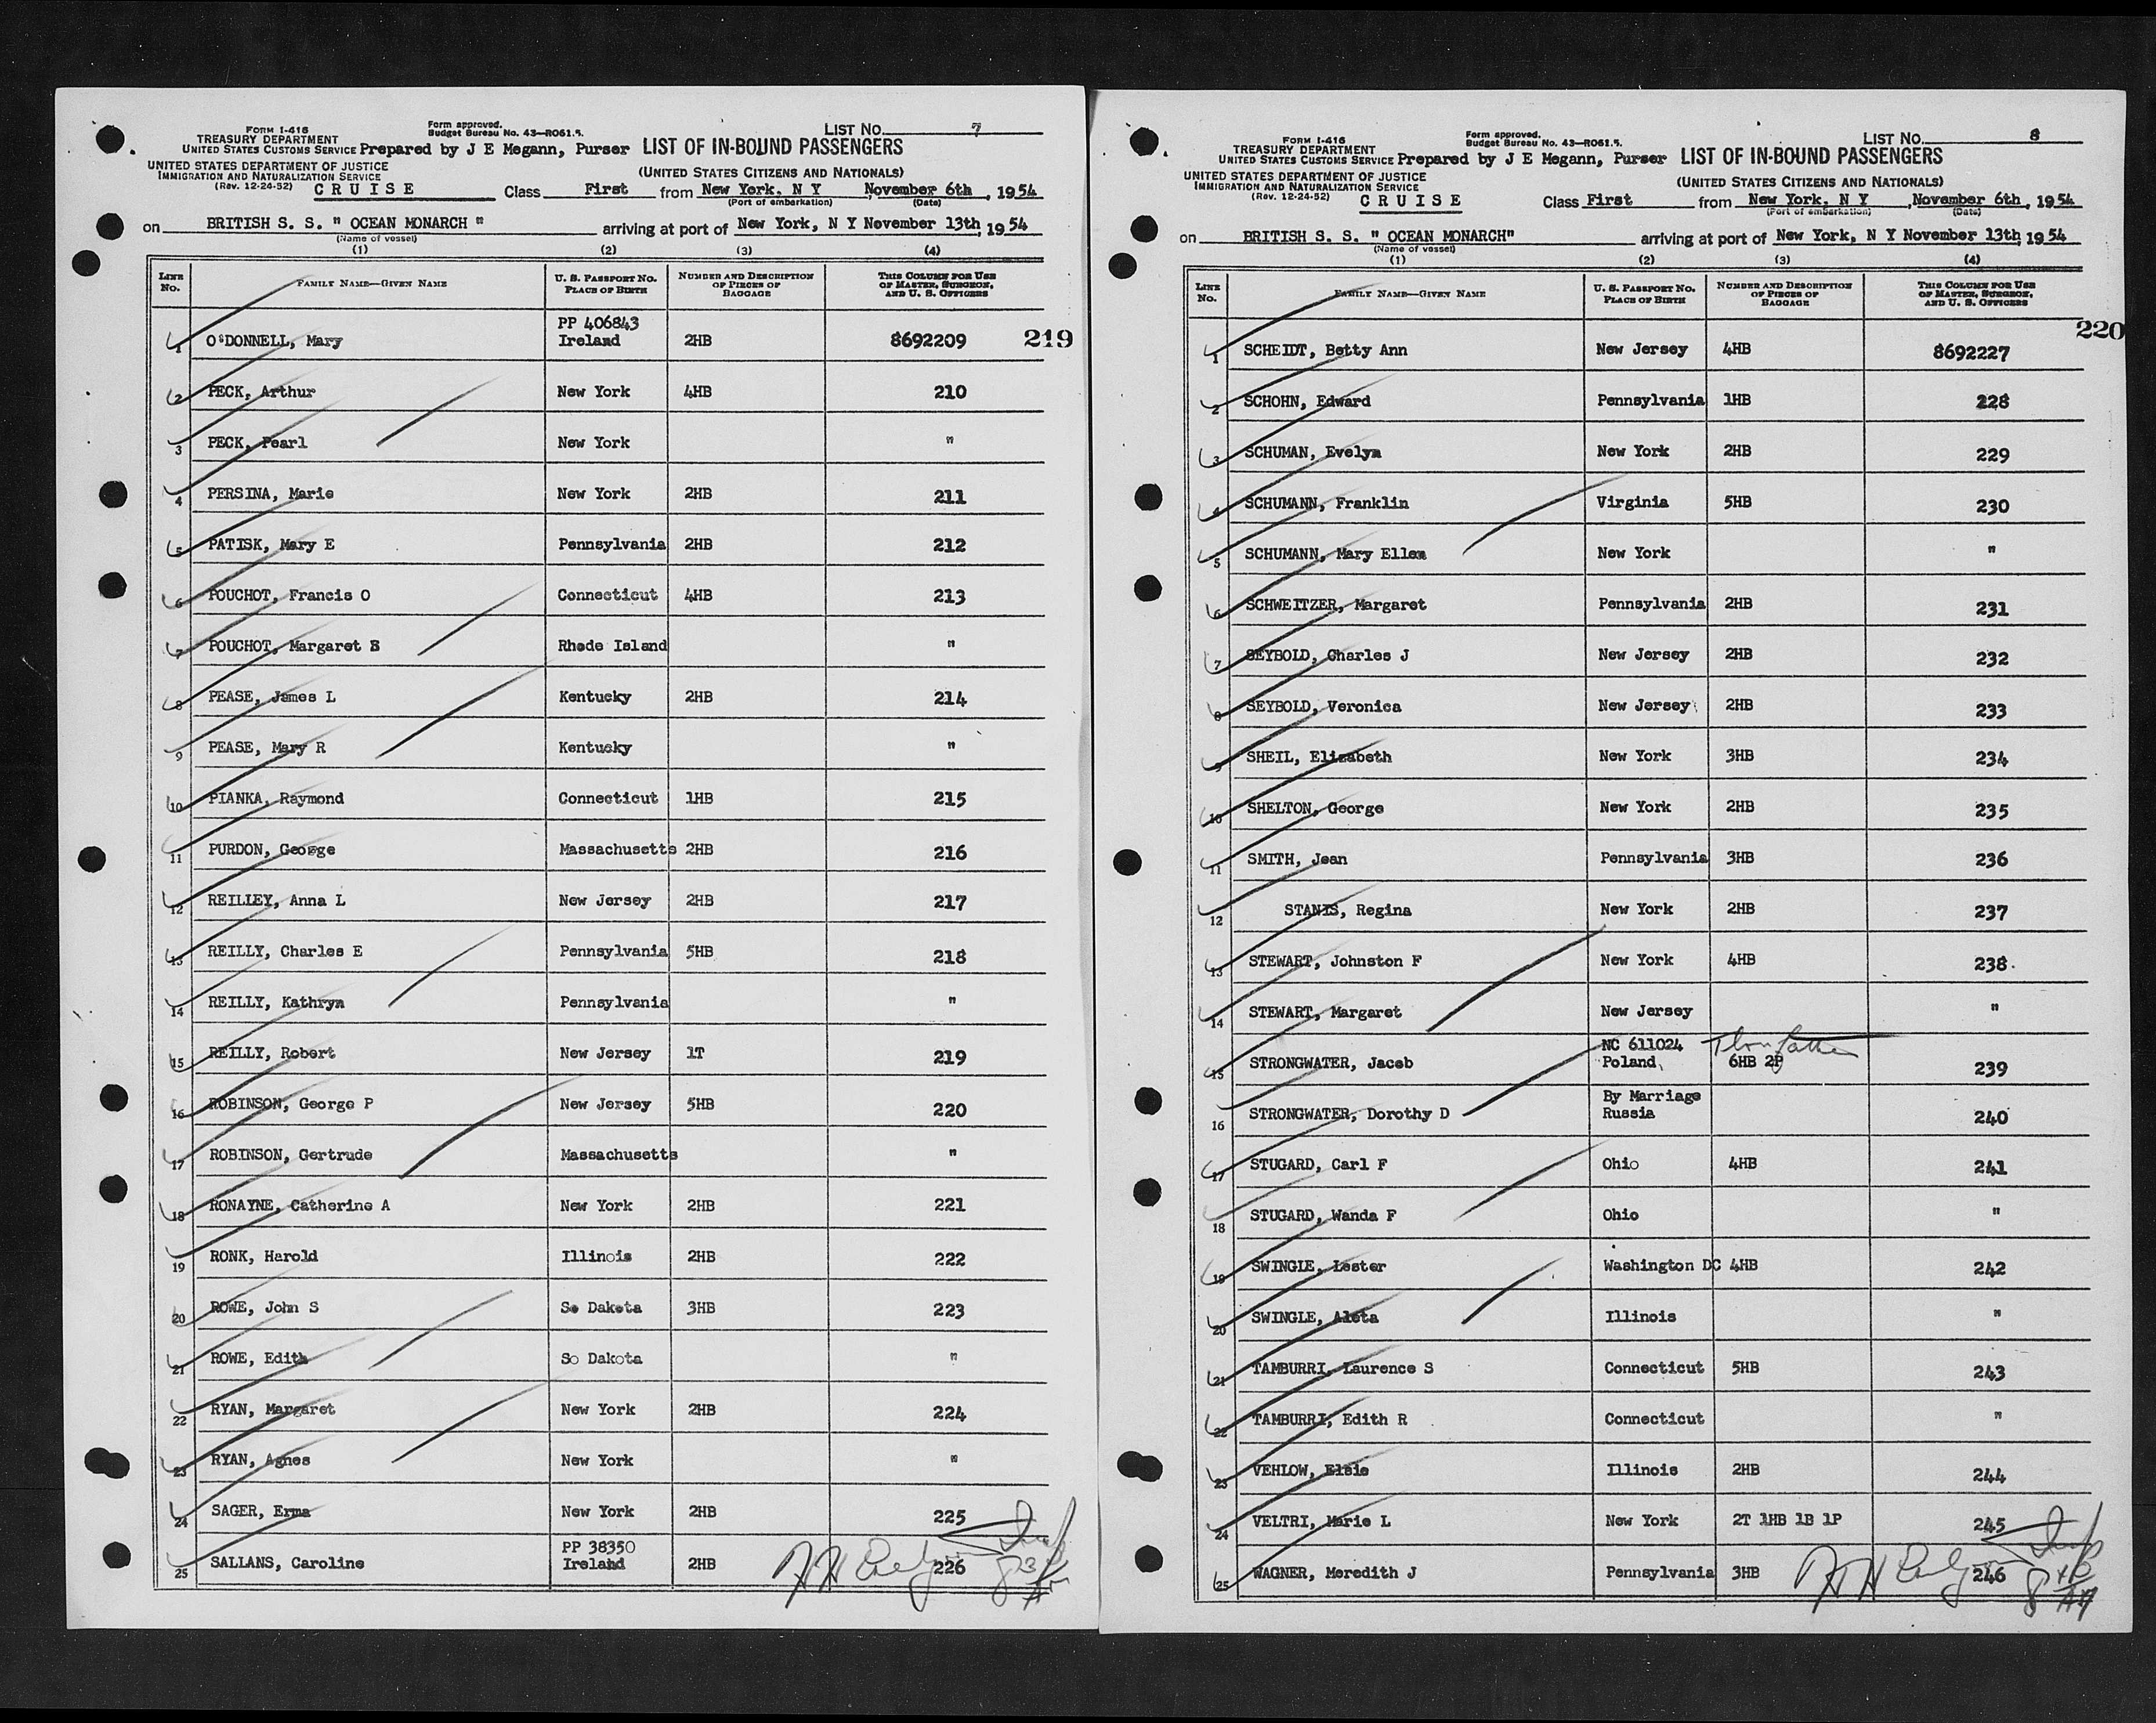 FORM I-416
TREASURY DEPARTMENT
UNITED STATES CUSTOMS SERVICE
UNITED STATES DEPARTMENT OF JUSTICE
IMMIGRATION AND NATURALIZATION SERVICE
(Rev. 12-24-52)
Form approved.
Budget Bureau No. 43—RO61.5.
Prepared by J E Megann, Purser
LIST No. 7
LIST OF IN-BOUND PASSENGERS
(UNITED STATES CITIZENS AND NATIONALS)
CRUISE Class First from New York, N Y November 6th, 1954
(Port of embarkation) (Date)
on BRITISH S. S. " OCEAN MONARCH " arriving at port of New York, N Y November 13th, 1954
(Name of vessel)
(1) (2) (3) (4)
LINE No. FAMILY NAME—GIVEN NAME U. S. PASSPORT NO. PLACE OF BIRTH NUMBER AND DESCRIPTION OF PIECES OF BAGGAGE THIS COLUMN FOR USE OF MASTER, SURGEON, AND U. S. OFFICERS
219
1 O'DONNELL, Mary PP 406843 Ireland 2HB 8692209
2 PECK, Arthur New York 4HB 210
3 PECK, Pearl New York "
4 PERSINA, Marie New York 2HB 211
5 PATISK, Mary E Pennsylvania 2HB 212
6 POUCHOT, Francis O Connecticut 4HB 213
7 POUCHOT, Margaret B Rhode Island "
8 PEASE, James L Kentucky 2HB 214
9 PEASE, Mary R Kentucky "
10 PIANKA, Raymond Connecticut 1HB 215
11 PURDON, George Massachusetts 2HB 216
12 REILLEY, Anna L New Jersey 2HB 217
13 REILLY, Charles E Pennsylvania 5HB 218
14 REILLY, Kathryn Pennsylvania "
15 REILLY, Robert New Jersey 1T 219
16 ROBINSON, George P New Jersey 5HB 220
17 ROBINSON, Gertrude Massachusetts "
18 RONAYNE, Catherine A New York 2HB 221
19 RONK, Harold Illinois 2HB 222
20 ROWE, John S So Dakota 3HB 223
21 ROWE, Edith So Dakota "
22 RYAN, Margaret New York 2HB 224
23 RYAN, Agnes New York "
24 SAGER, Erma New York 2HB 225
25 SALLANS, Caroline PP 38350 Ireland 2HB 226
FORM I-416
TREASURY DEPARTMENT
UNITED STATES CUSTOMS SERVICE
UNITED STATES DEPARTMENT OF JUSTICE
IMMIGRATION AND NATURALIZATION SERVICE
(Rev. 12-24-52)
Form approved.
Budget Bureau No. 43—RO61.5.
Prepared by J E Megann, Purser
LIST No. 8
LIST OF IN-BOUND PASSENGERS
(UNITED STATES CITIZENS AND NATIONALS)
CRUISE Class First from New York, N Y, November 6th, 1954
(Port of embarkation) (Date)
on BRITISH S. S. " OCEAN MONARCH" arriving at port of New York, N Y November 13th, 1954
(Name of vessel)
(1) (2) (3) (4)
LINE No. FAMILY NAME—GIVEN NAME U. S. PASSPORT NO. PLACE OF BIRTH NUMBER AND DESCRIPTION OF PIECES OF BAGGAGE THIS COLUMN FOR USE OF MASTER, SURGEON, AND U. S. OFFICERS
220
1 SCHEIDT, Betty Ann New Jersey 4HB 8692227
2 SCHOHN, Edward Pennsylvania 1HB 228
3 SCHUMAN, Evelyn New York 2HB 229
4 SCHUMANN, Franklin Virginia 5HB 230
5 SCHUMANN, Mary Ellen New York "
6 SCHWEITZER, Margaret Pennsylvania 2HB 231
7 SEYBOLD, Charles J New Jersey 2HB 232
8 SEYBOLD, Veronica New Jersey 2HB 233
9 SHEIL, Elizabeth New York 3HB 234
10 SHELTON, George New York 2HB 235
11 SMITH, Jean Pennsylvania 3HB 236
12 STANIS, Regina New York 2HB 237
13 STEWART, Johnston F New York 4HB 238.
14 STEWART, Margaret New Jersey "
15 STRONGWATER, Jacob NC 611024 Poland 6HB 2P 239
16 STRONGWATER, Dorothy D By Marriage Russia 240
17 STUGARD, Carl F Ohio 4HB 241
18 STUGARD, Wanda F Ohio "
19 SWINGLE, Lester Washington DC 4HB 242
20 SWINGLE, Aleta Illinois "
21 TAMBURRI, Laurence S Connecticut 5HB 243
22 TAMBURRI, Edith R Connecticut "
23 VEHLOW, Elsie Illinois 2HB 244
24 VELTRI, Marie L New York 2T 1HB 1B 1P 245
25 WAGNER, Meredith J Pennsylvania 3HB 246